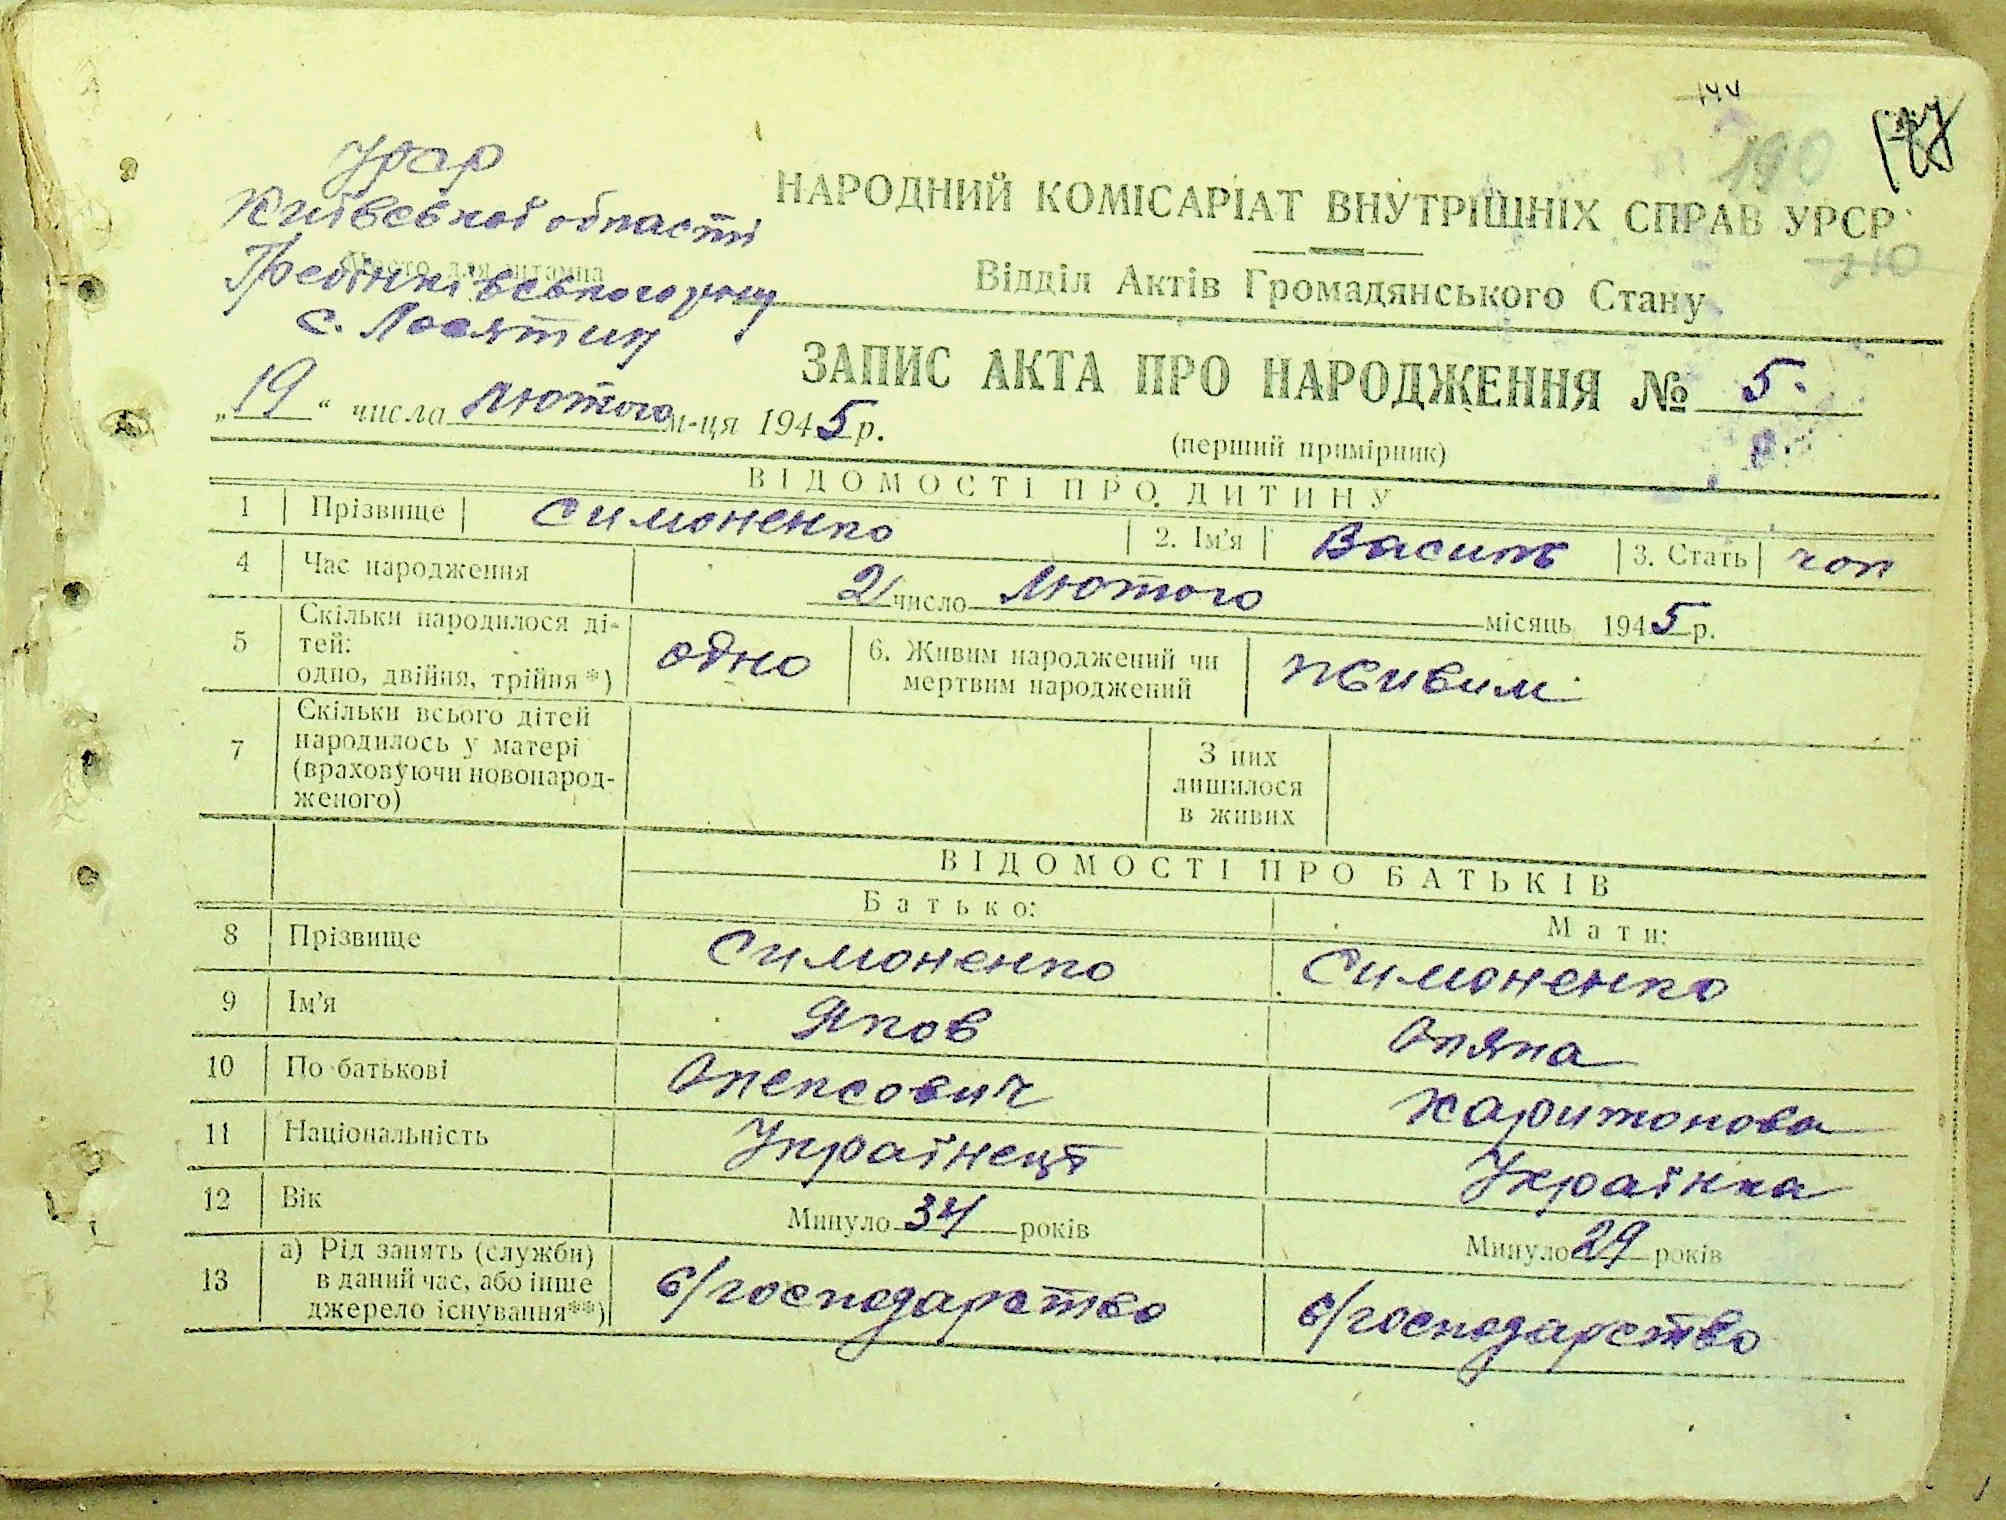 144
190
УРСР
Київської області
НАРОДНИЙ КОМІСАРІАТ ВНУТРІШНІХ СПРАВ УРСР
210
Місто для штампа
Гребінківського р-ну
Відділ Актів Громадянського Стану
с. Лосятин
ЗАПИС АКТА ПРО НАРОДЖЕННЯ № 5.
„19“ числа Лютого м-ця 1945 р.
(перший примірник)
ВІДОМОСТІ ПРО ДИТИНУ
1 Прізвище Симоненко 2. Ім'я Василь 3. Стать чол
4 Час народження 2 число Лютого місяць 1945 р.
5 Скільки народилося ді-
тей:
одно, двійня, трійня*) одно 6. Живим народжений чи
мертвим народжений живим
7 Скільки всього дітей
народилось у матері
(враховуючи новонарод-
женого)
З них
лишилося
в живих
ВІДОМОСТІ ПРО БАТЬКІВ
Батько: Мати:
8 Прізвище Симоненко Симоненко
9 Ім'я Яков Оляна
10 По-батькові Олексович Харитонова
11 Національність Українець Українка
12 Вік Минуло 34 років Минуло 29 років
13 а) Рід занять (служби)
в даний час, або інше
джерело існування**) с/господарство с/господарство